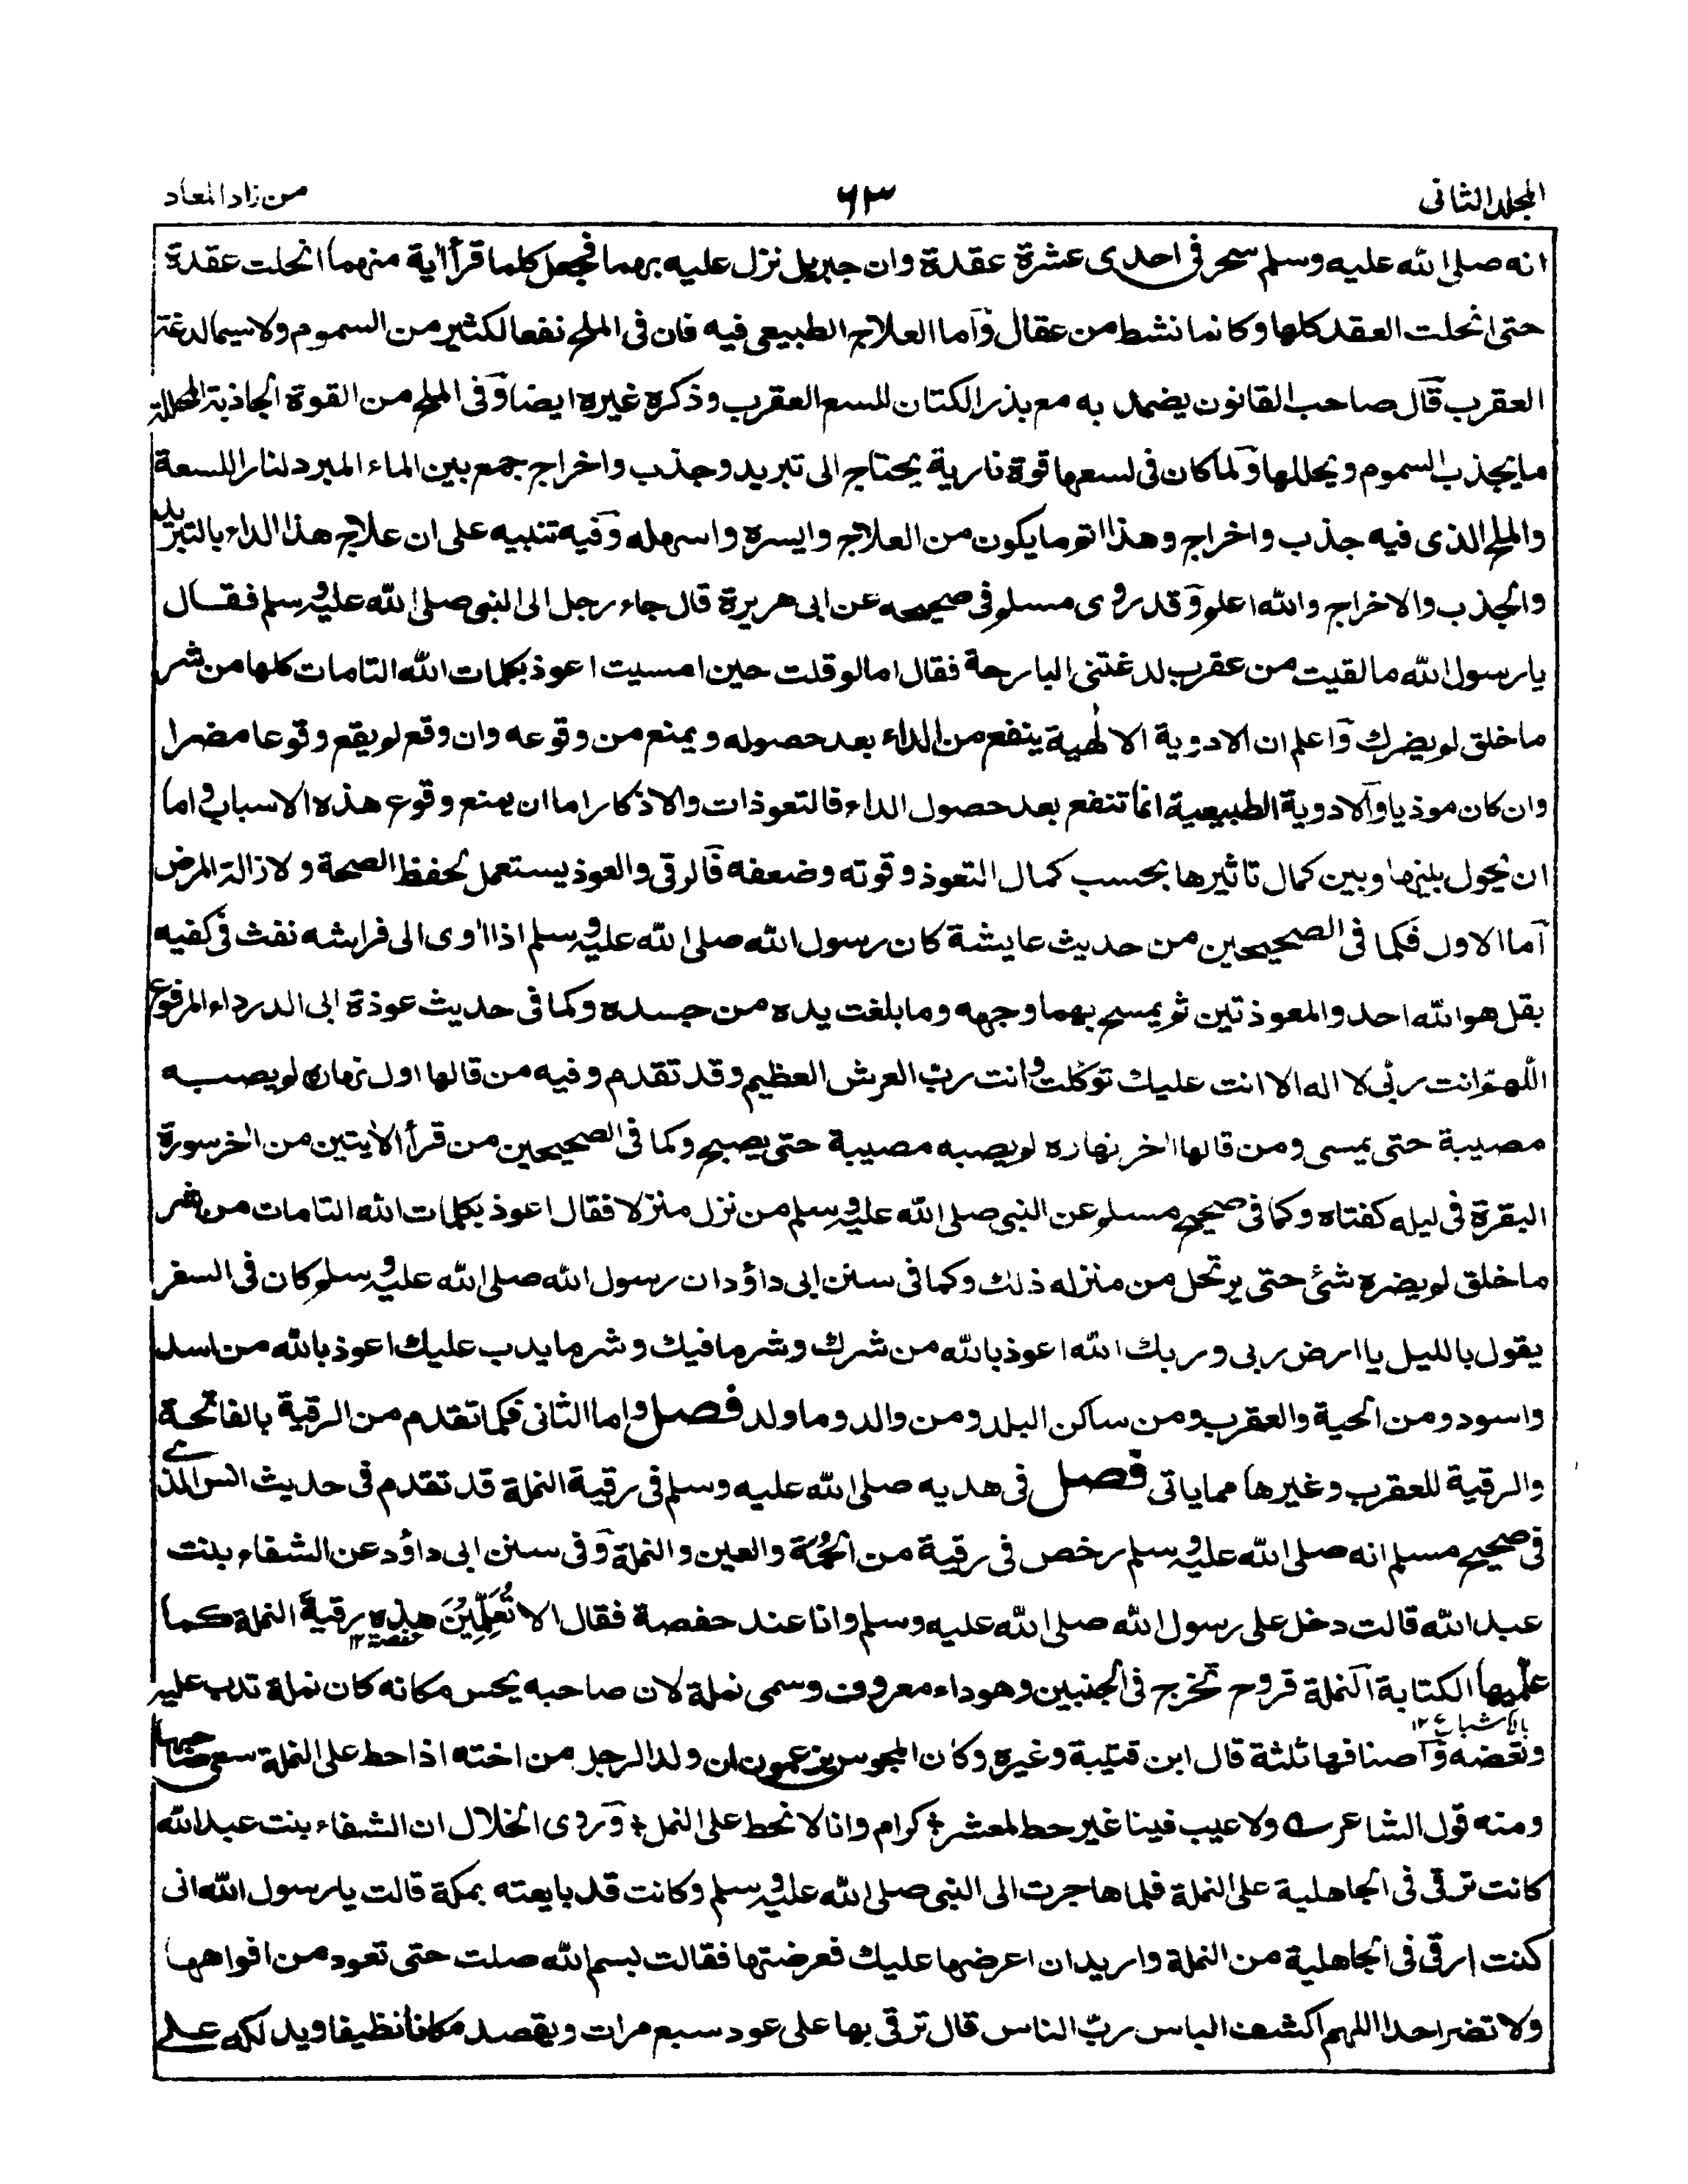 المجلد الثانى
٦٣
من زاد المعاد
انه صلى الله عليه وسلم سحر فى احدى عشرة عقدة وان جبريل نزل عليه بهما فجعل كلما قرأ اٰية منهما انحلت عقدة
حتى انحلت العقد كلها وكانما نشط من عقال وٓاما العلاج الطبيعى فيه فان فى الملح نفعا لكثير من السموم ولاسيما لدغة
العقرب قٓال صاحب القانون يضمد به مع بذر الكتان للسع العقرب وذكره غيره ايضا وٓفى الملح من القوة الجاذبة المحللة
ما يجذب السموم ويحللها وٓلما كان فى لسعها قوة نارية يحتاج الى تبريد وجذب واخراج جمع بين الماء المبرد لنار اللسعة
والملح الذى فيه جذب واخراج وهذا اتم ما يكون من العلاج وايسره واسهله وٓفيه تنبيه على ان علاج هذا الداء بالتبريد
والجذب والاخراج والله اعلم وٓقد روى مسلم فى صحيحه عن ابى هريرة قال جاء رجل الى النبى صلى الله عليه وسلم فقال
يا رسول الله ما لقيت من عقرب لدغتنى البارحة فقال اما لو قلت حين امسيت اعوذ بكلمات الله التامات كلها من شر
ما خلق لم يضرك وٓاعلم ان الادوية الالٰهية ينفع من الداء بعد حصوله ويمنع من وقوعه وان وقع لم يقع وقوعا مضرا
وان كان موذيا وٓالادوية الطبيعية انما تنفع بعد حصول الداء فالتعوذات والاذكار اما ان يمنع وقوع هذه الاسباب واما
ان يحول بينها وبين كمال تاثيرها بحسب كمال التعوذ وقوته وضعفه فٓالرقى والعوذ يستعمل لحفظ الصحة ولازالة المرض
آما الاول فكما فى الصحيحين من حديث عايشة كان رسول الله صلى الله عليه وسلم اذا اٰوى الى فراشه نفث فى كفيه
بقل هو الله احد والمعوذتين ثم يمسح بهما وجهه وما بلغت يده من جسده وكما فى حديث عوذة ابى الدرداء المرفوع
اللّهمّ انت ربّى لا اله الا انت عليك توكلت وانت ربّ العرش العظيم وقد تقدم وفيه من قالها اول نهاره لم يصبه
مصيبة حتى يمسى ومن قالها اٰخر نهاره لم يصبه مصيبة حتى يصبح وكما فى الصحيحين من قرأ الاٰيتين من اٰخر سورة
البقرة فى ليله كفتاه وكما فى صحيح مسلم عن النبى صلى الله عليه وسلم من نزل منزلا فقال اعوذ بكلمات الله التامات من شر
ما خلق لم يضره شئ حتى يرتحل من منزله ذلك وكما فى سنن ابى داؤد ان رسول الله صلى الله عليه وسلم كان فى السفر
يقول بالليل يا ارض ربى وربك الله اعوذ بالله من شرك وشر ما فيك وشر ما يدب عليك اعوذ بالله من اسد
واسود ومن الحية والعقرب ومن ساكن البلد ومن والد وما ولد فصل واما الثانى فكما تقدم من الرقية بالفاتحة
والرقية للعقرب وغيرها مما ياتى فصل فى هديه صلى الله عليه وسلم فى رقية النملة قد تقدم فى حديث انس الذى
فى صحيح مسلم انه صلى الله عليه وسلم رخص فى رقية من الحُمَة والعين والنملة وٓفى سنن ابى داؤد عن الشفاء بنت
عبد الله قالت دخل على رسول الله صلى الله عليه وسلم وانا عند حفصة فقال الا تُعَلِّمِيْنَ هذه رقيةَ النملة كما
حفصة ١٢
علّمتيها الكتابة آلنملة قروح تخرج فى الجنبين وهو داء معروف وسمى نملة لان صاحبه يحس مكانه كان نملة تدب عليه
بالاشباع ١٢
وتعضه وٓاصنافها ثلثة قال ابن قتيبة وغيره وكان المجوس يزعمون ان ولد الرجل من اخته اذا حط على النملة سعى صاحبها
ومنه قول الشاعر ؎ ولا عيب فينا غير حط لمعشر؛ كرام وانا لا نحط على النمل؛ وٓروى الخلال ان الشفاء بنت عبد الله
كانت ترقى فى الجاهلية على النملة فلما هاجرت الى النبى صلى الله عليه وسلم وكانت قد بايعته بمكة قالت يا رسول الله انى
كنت ارقى فى الجاهلية من النملة واريد ان اعرضها عليك فعرضتها فقالت بسم الله صلت حتى تعود من افواهها
ولا تضر احدا اللهم اكشف الباس ربّ الناس قال ترقى بها على عود سبع مرات ويقصد مكانا نظيفا ويدلكه على